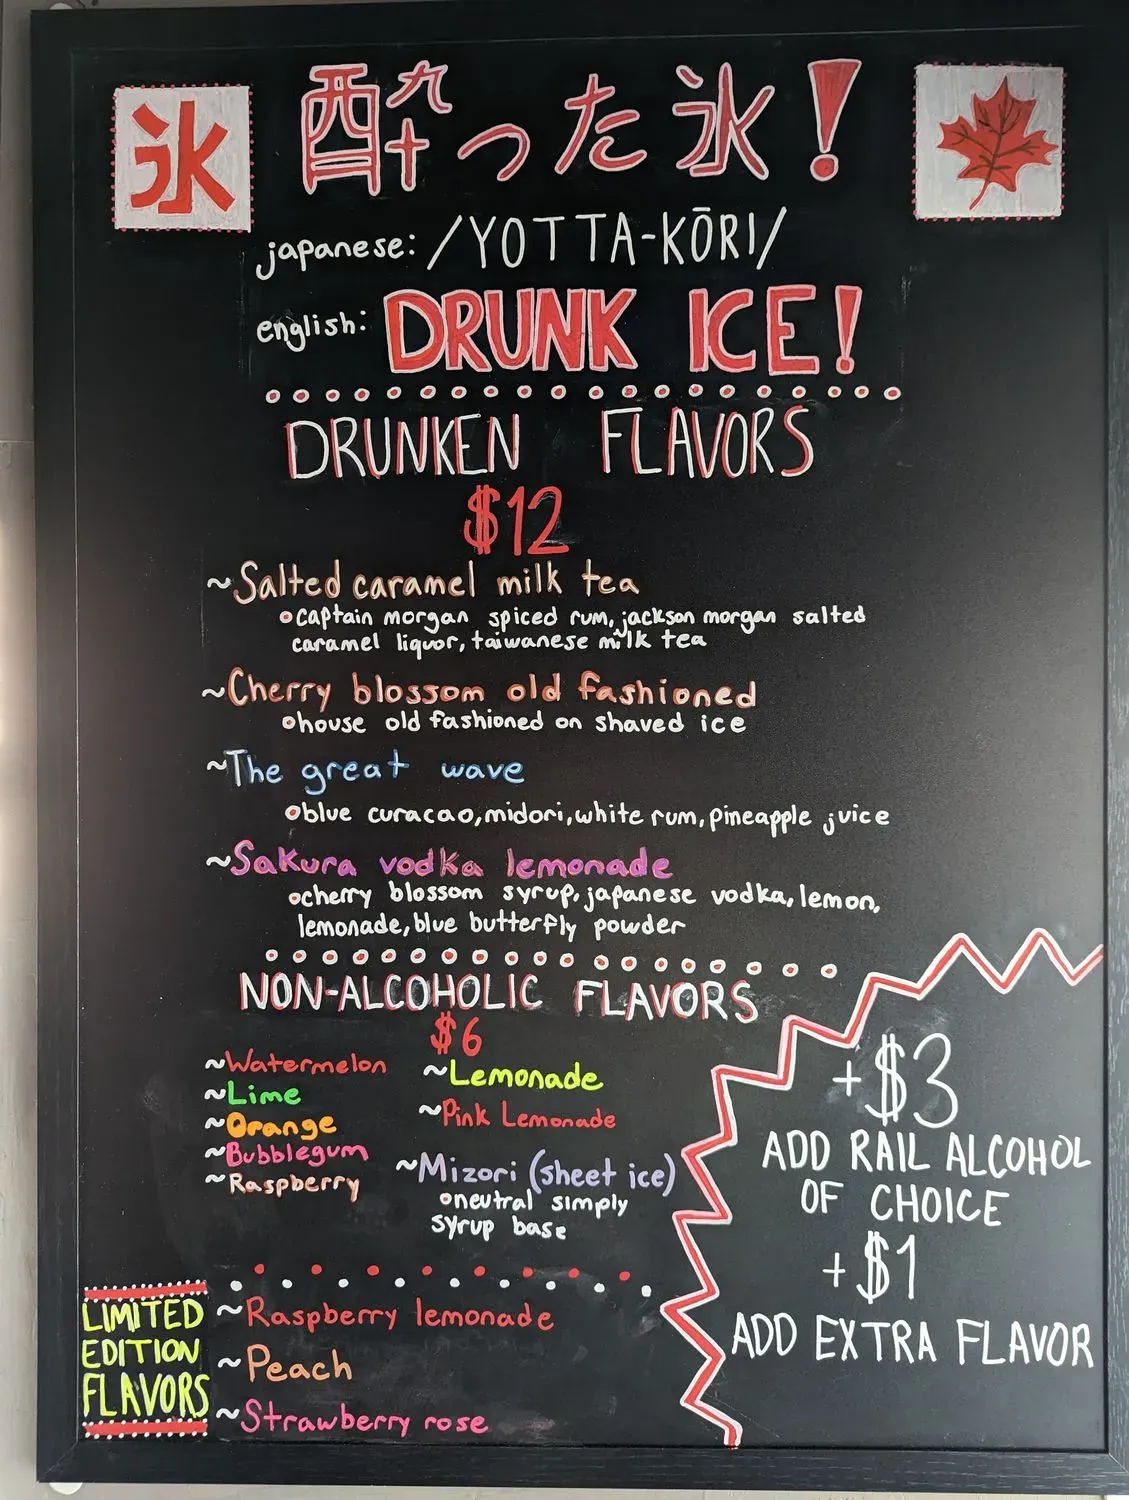 氷
酔った氷!
japanese: /YOTTA-KŌRI/
english: DRUNK ICE!
DRUNKEN FLAVORS
$12
~Salted caramel milk tea
captain morgan spiced rum, jackson morgan salted
caramel liquor, taiwanese milk tea
~Cherry blossom old fashioned
house old fashioned on shaved ice
~The great wave
blue curacao, midori, white rum, pineapple juice
~Sakura vodka lemonade
cherry blossom syrup, japanese vodka, lemon,
lemonade, blue butterfly powder
NON-ALCOHOLIC FLAVORS
$6
~Watermelon
~Lime
~Orange
~Bubblegum
~Raspberry
~Lemonade
~Pink Lemonade
~Mizori (sheet ice)
neutral simply
syrup base
+$3
ADD RAIL ALCOHOL
OF CHOICE
+$1
ADD EXTRA FLAVOR
LIMITED
EDITION
FLAVORS
~Raspberry lemonade
~Peach
~Strawberry rose